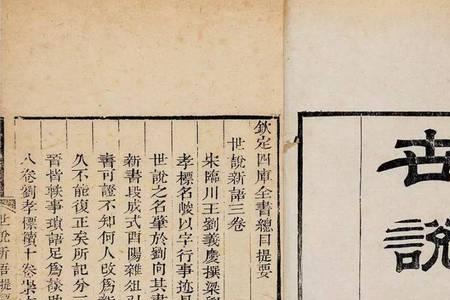 世說
欽定四庫全書總目提要
世說新語三卷
宋臨川王劉義慶撰梁
孝標名峻以字行事迹
世說之名肇於劉向其書
新書段成式酉陽雜俎引
書可證不知何人改為
久不能復正矣所記分三
晉皆軼事瑣語足為談助
八卷劉孝標續十卷
世說新語提